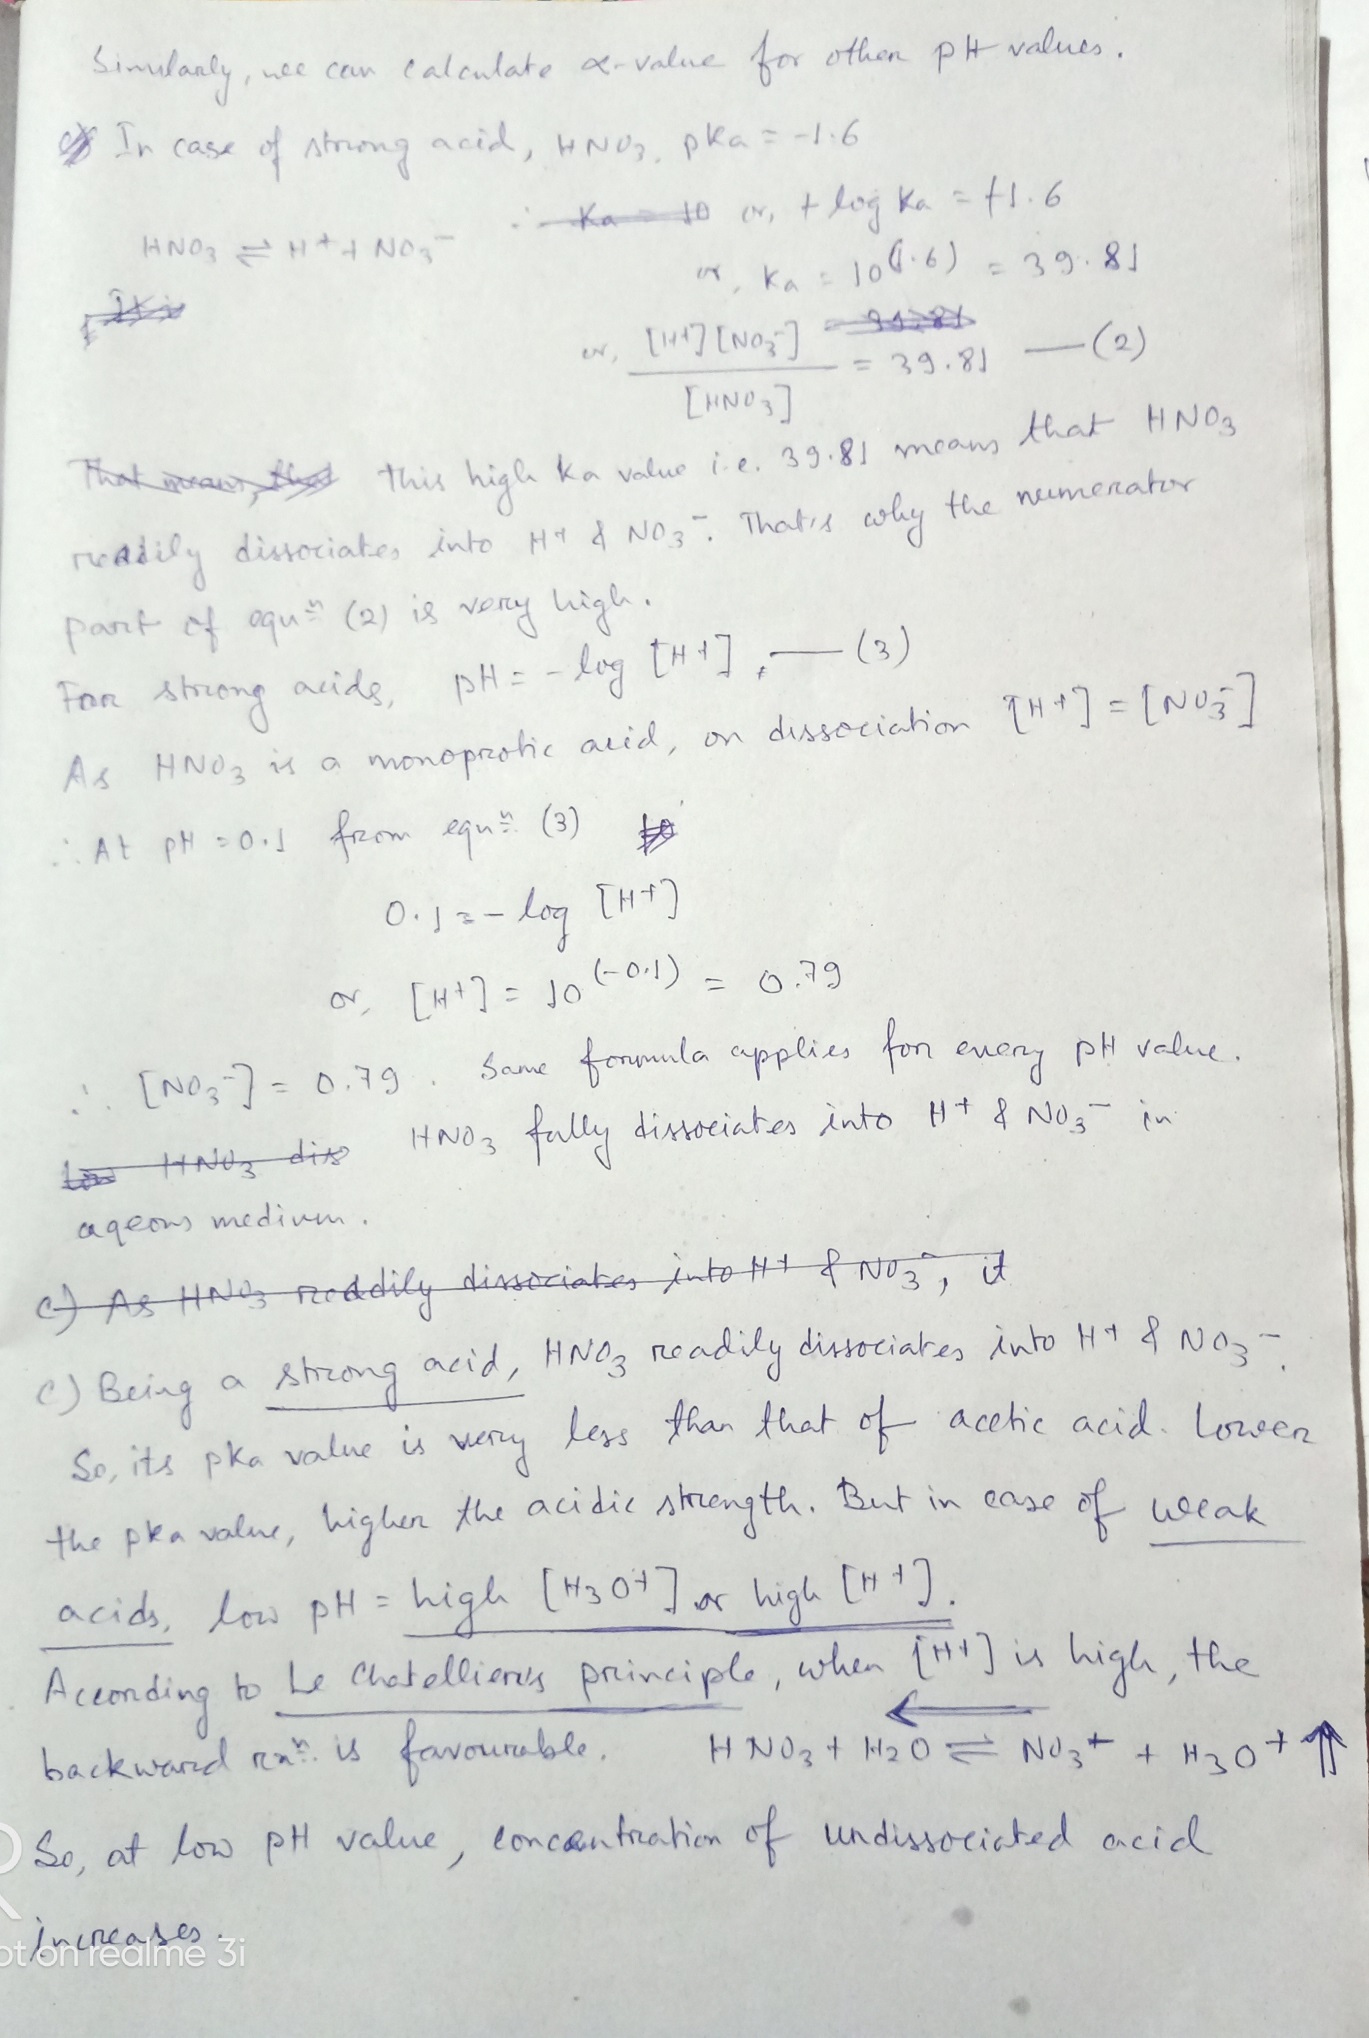 Similarly, we can calculate α-value for other pH values.
In case of strong acid, HNO3, pKa = -1.6
∴ Ka = 10 or, + log Ka = +1.6
HNO3 ⇌ H+ + NO3-
or, Ka = 10(1.6) = 39.81
It is
or, [H+][NO3-] / [HNO3] = 39.81 —(2)
That means, that this high Ka value i.e. 39.81 means that HNO3
readily dissociates into H+ & NO3-. That's why the numerator
part of equn (2) is very high.
For strong acids, pH = - log [H+], —(3)
As HNO3 is a monoprotic acid, on dissociation [H+] = [NO3-]
∴ At pH = 0.1 from equn (3)
0.1 = - log [H+]
or, [H+] = 10(-0.1) = 0.79
∴ [NO3-] = 0.79. Same formula applies for every pH value.
HNO3 dis HNO3 fully dissociates into H+ & NO3- in
aqeous medium.
c) As HNO3 readily dissociates into H+ & NO3-, it
c) Being a strong acid, HNO3 readily dissociates into H+ & NO3-.
So, its pKa value is very less than that of acetic acid. Lower
the pKa value, higher the acidic strength. But in case of weak
acids, low pH = high [H3O+] or high [H+].
According to Le Chatellier's principle, when [H+] is high, the
backward rxn is favourable. HNO3 + H2O ⇌ NO3+ + H3O+ ⇑
So, at low pH value, concentration of undissociated acid
increases.
ot on realme 3i